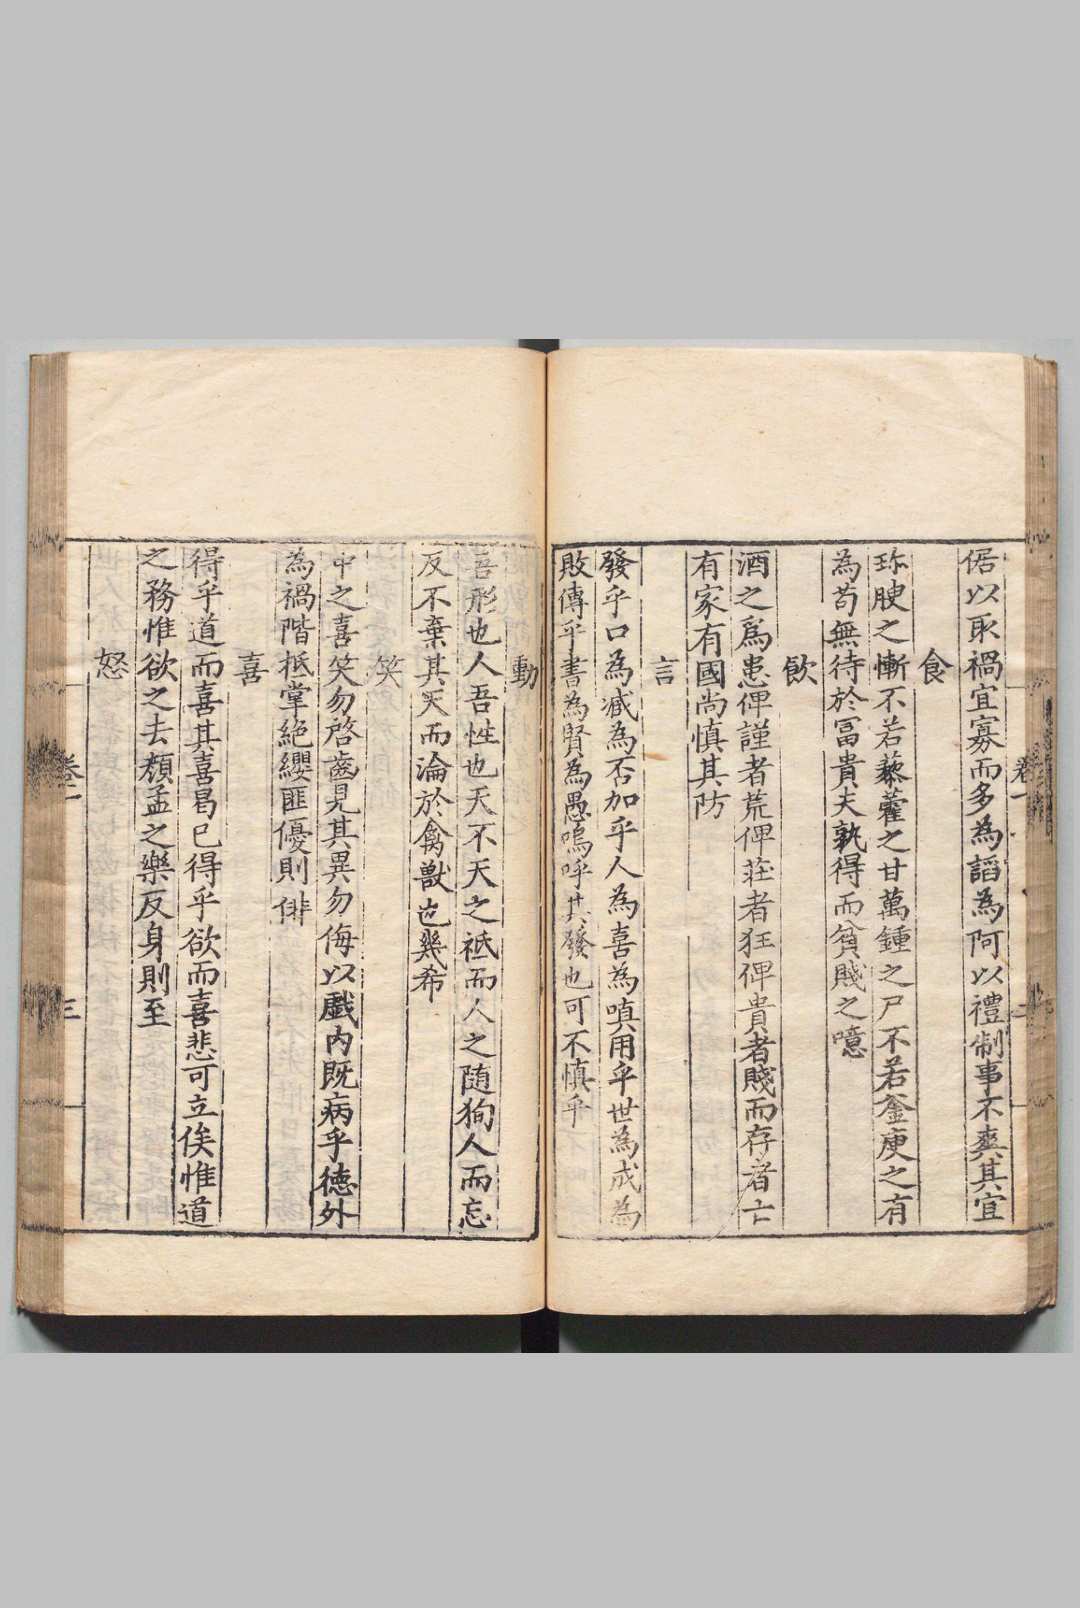 倨以取禍宜寡而多為謟為阿以禮制事不爽其宜
食
珎腴之慚不若藜藿之甘萬鍾之尸不若釜庾之有
為苟無待於冨貴夫孰得而貧賤之噫
飲
酒之爲患俾謹者荒俾荘者狂俾貴者賤而存者亡
有家有國尚慎其防
言
發乎口為臧為否加乎人為喜為嗔用乎世為成為
敗傳乎書為賢為愚嗚呼其發也可不慎乎
動
吾形也人吾性也天不天之祗而人之随狥人而忘
反不棄其天而淪於禽獸也幾希
笑
中之喜笑勿啓齒見其異勿侮以戱内既病乎徳外
為禍階抵掌絶纓匪優則俳
喜
得乎道而喜其喜曷已得乎欲而喜悲可立俟惟道
之務惟欲之去顔孟之樂反身則至
怒
卷一
卷一
三